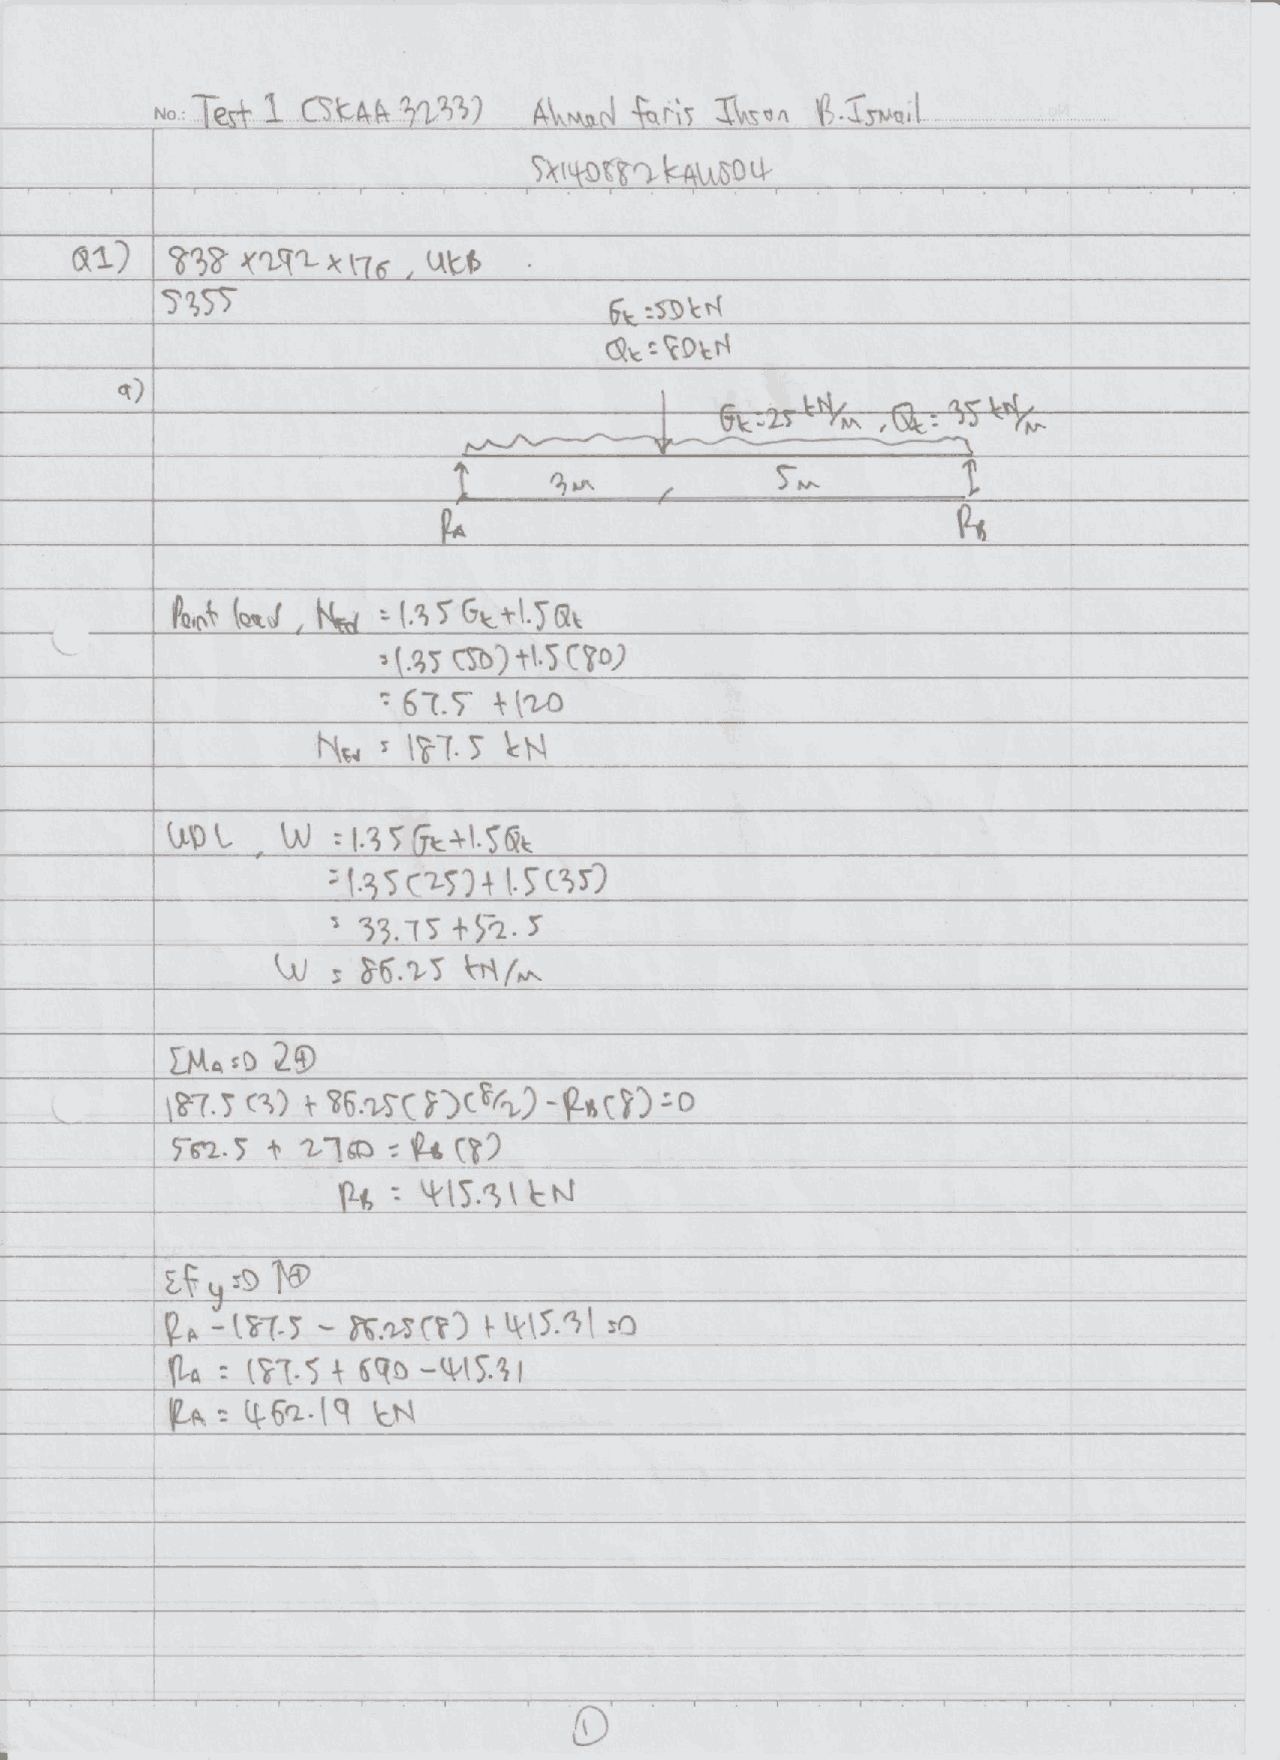 No.: Test 1 (SKAA 3233) Ahmad Faris Ihsan B. Ismail
SX140882KAWS04
Q1) 838 x 292 x 176, UKB
S355
Gk = 50 kN
Qk = 80 kN
a)
Gk = 25 kN/m, Qk = 35 kN/m
3m 5m
RA RB
Point load, NEd = 1.35 Gk + 1.5 Qk
= 1.35 (50) + 1.5 (80)
= 67.5 + 120
NEd = 187.5 kN
UDL, W = 1.35 Gk + 1.5 Qk
= 1.35 (25) + 1.5 (35)
= 33.75 + 52.5
W = 86.25 kN/m
ΣMA = 0 ↻⊕
187.5 (3) + 86.25 (8) (8/2) - RB (8) = 0
562.5 + 2760 = RB (8)
RB = 415.31 kN
ΣFy = 0 ↑⊕
RA - 187.5 - 86.25 (8) + 415.31 = 0
RA = 187.5 + 690 - 415.31
RA = 462.19 kN
1